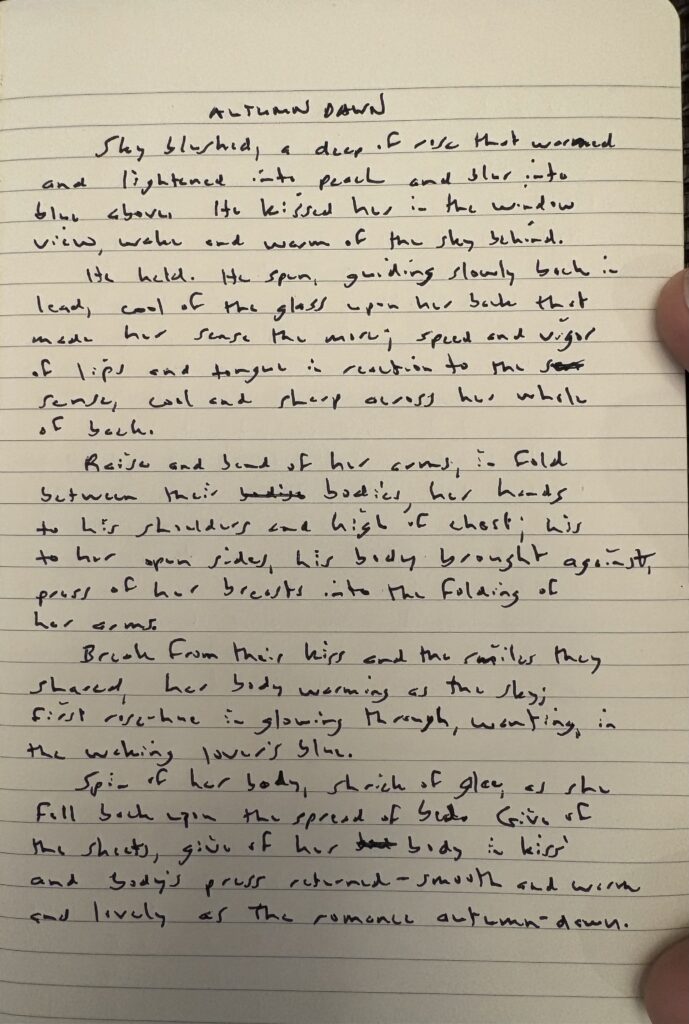 AUTUMN DAWN
Sky blushed, a deep of rose that warmed
and lightened into peach and blur into
blue above. He kissed her in the window
view, wake and warm of the sky behind.
He held. He spun, guiding slowly back in
lead, cool of the glass upon her back that
made her sense the more; speed and vigor
of lips and tongue in reaction to the
sense, cool and sharp across her whole
of back.
Raise and bend of her arms, in fold
between their bodies, her hands
to his shoulders and high of chest; his
to her open sides, his body brought against,
press of her breasts into the folding of
her arms.
Break from their kiss and the smiles they
shared, her body warming as the sky;
first rose-hue in glowing through, wanting, in
the waking lover's blue.
Spin of her body, shriek of glee, as she
fell back upon the spread of bed. Give of
the sheets, give of her body in kiss'
and body's press returned - smooth and warm
and lovely as the romance autumn-dawn.